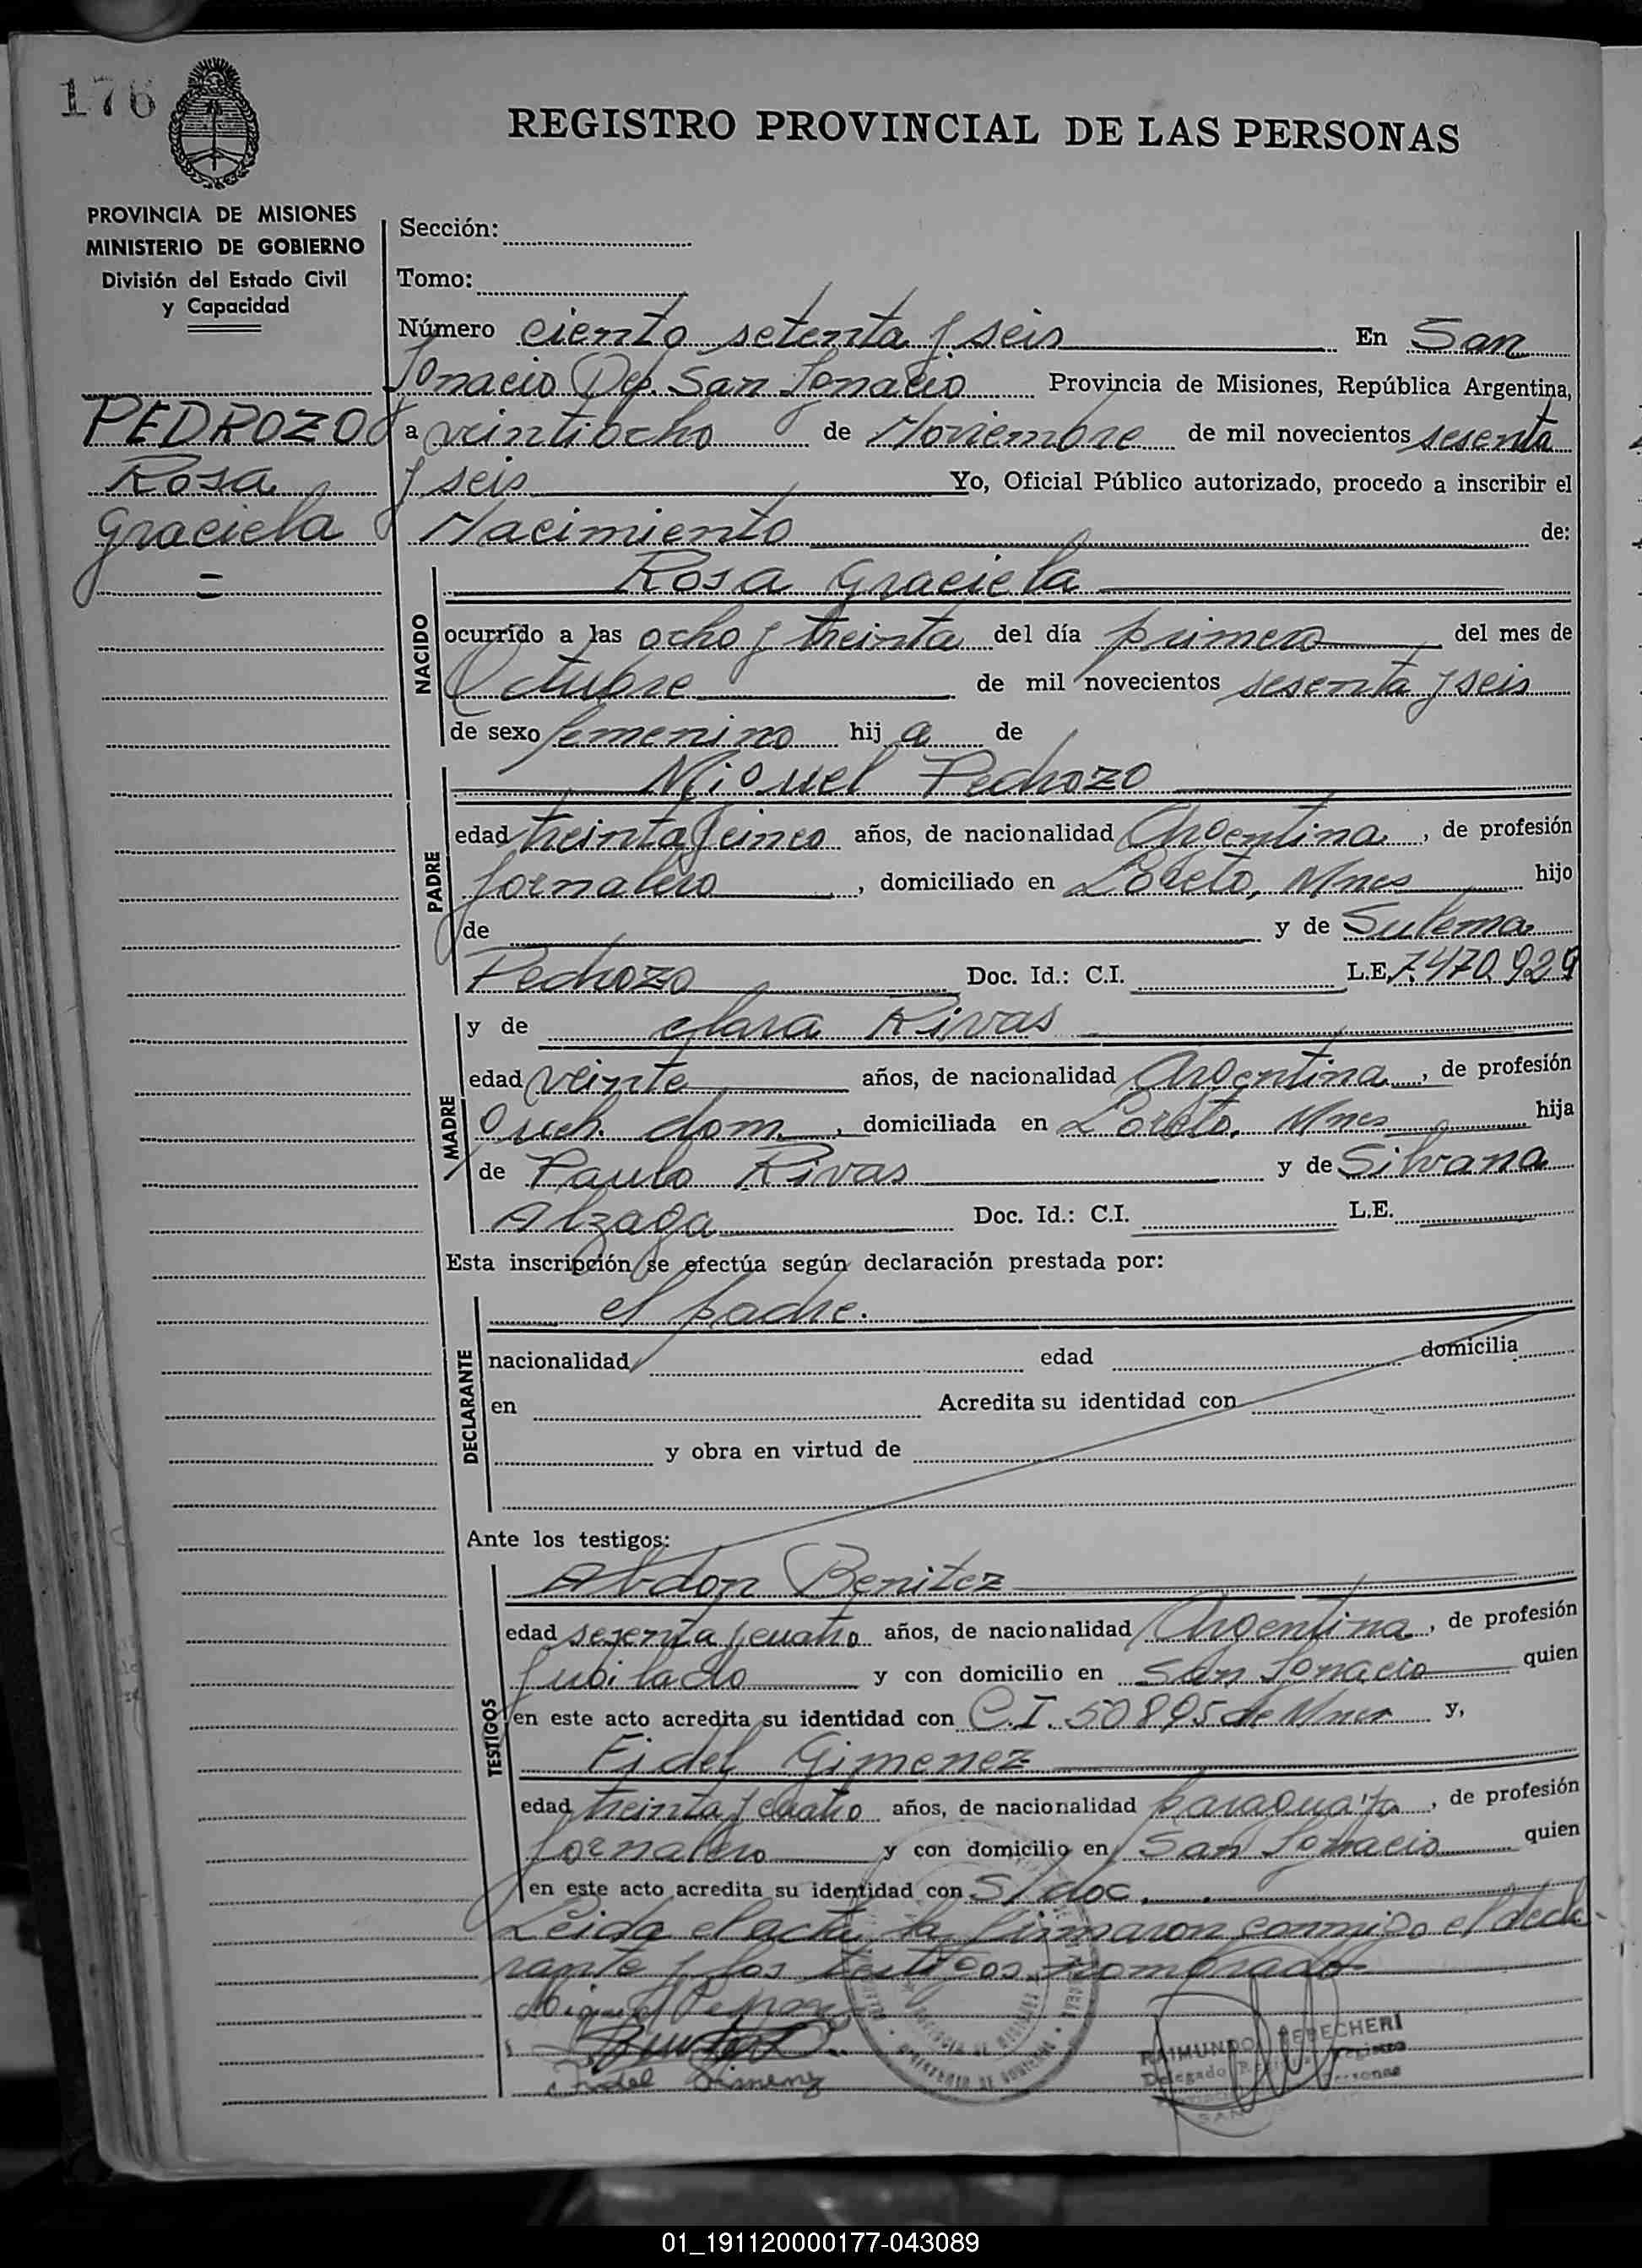 176
REGISTRO PROVINCIAL DE LAS PERSONAS
PROVINCIA DE MISIONES
MINISTERIO DE GOBIERNO
División del Estado Civil
y Capacidad
PEDROZO
Rosa
Graciela
=
Sección:
Tomo:
Número ciento setenta y seis En San
Ignacio Dep. San Ignacio Provincia de Misiones, República Argentina,
a veintiocho de Noviembre de mil novecientos sesenta
y seis Yo, Oficial Público autorizado, procedo a inscribir el
Nacimiento de:
NACIDO
Rosa Graciela
ocurrido a las ocho y treinta del día primero del mes de
Octubre de mil novecientos sesenta y seis
de sexo femenino hij a de
PADRE
Miguel Pedrozo
edad treinta y cinco años, de nacionalidad Argentina, de profesión
jornalero, domiciliado en Loreto, Mnes hijo
de y de Sulema
Pedrozo Doc. Id.: C.I. L.E. 7.470.929
MADRE
y de Clara Rivas
edad veinte años, de nacionalidad Argentina, de profesión
Queh. dom., domiciliada en Loreto, Mnes hija
de Paulo Rivas y de Silvana
Alzaga Doc. Id.: C.I. L.E.
Esta inscripción se efectúa según declaración prestada por:
DECLARANTE
el padre.
nacionalidad edad domicilia
en Acredita su identidad con
y obra en virtud de
Ante los testigos:
TESTIGOS
Abdon Benitez
edad sesenta y cuatro años, de nacionalidad Argentina, de profesión
Jubilado y con domicilio en San Ignacio quien
en este acto acredita su identidad con C.I. 50895 de Mnes y,
Fidel Gimenez
edad treinta y cuatro años, de nacionalidad paraguaya, de profesión
jornalero y con domicilio en San Ignacio quien
en este acto acredita su identidad con S/doc.
Leida el acta la firmaron conmigo el decla-
rante y los testigos nombrado
Miguel
Fidel Gimenez
RAIMUNDO
Delegado
01_191120000177-043089